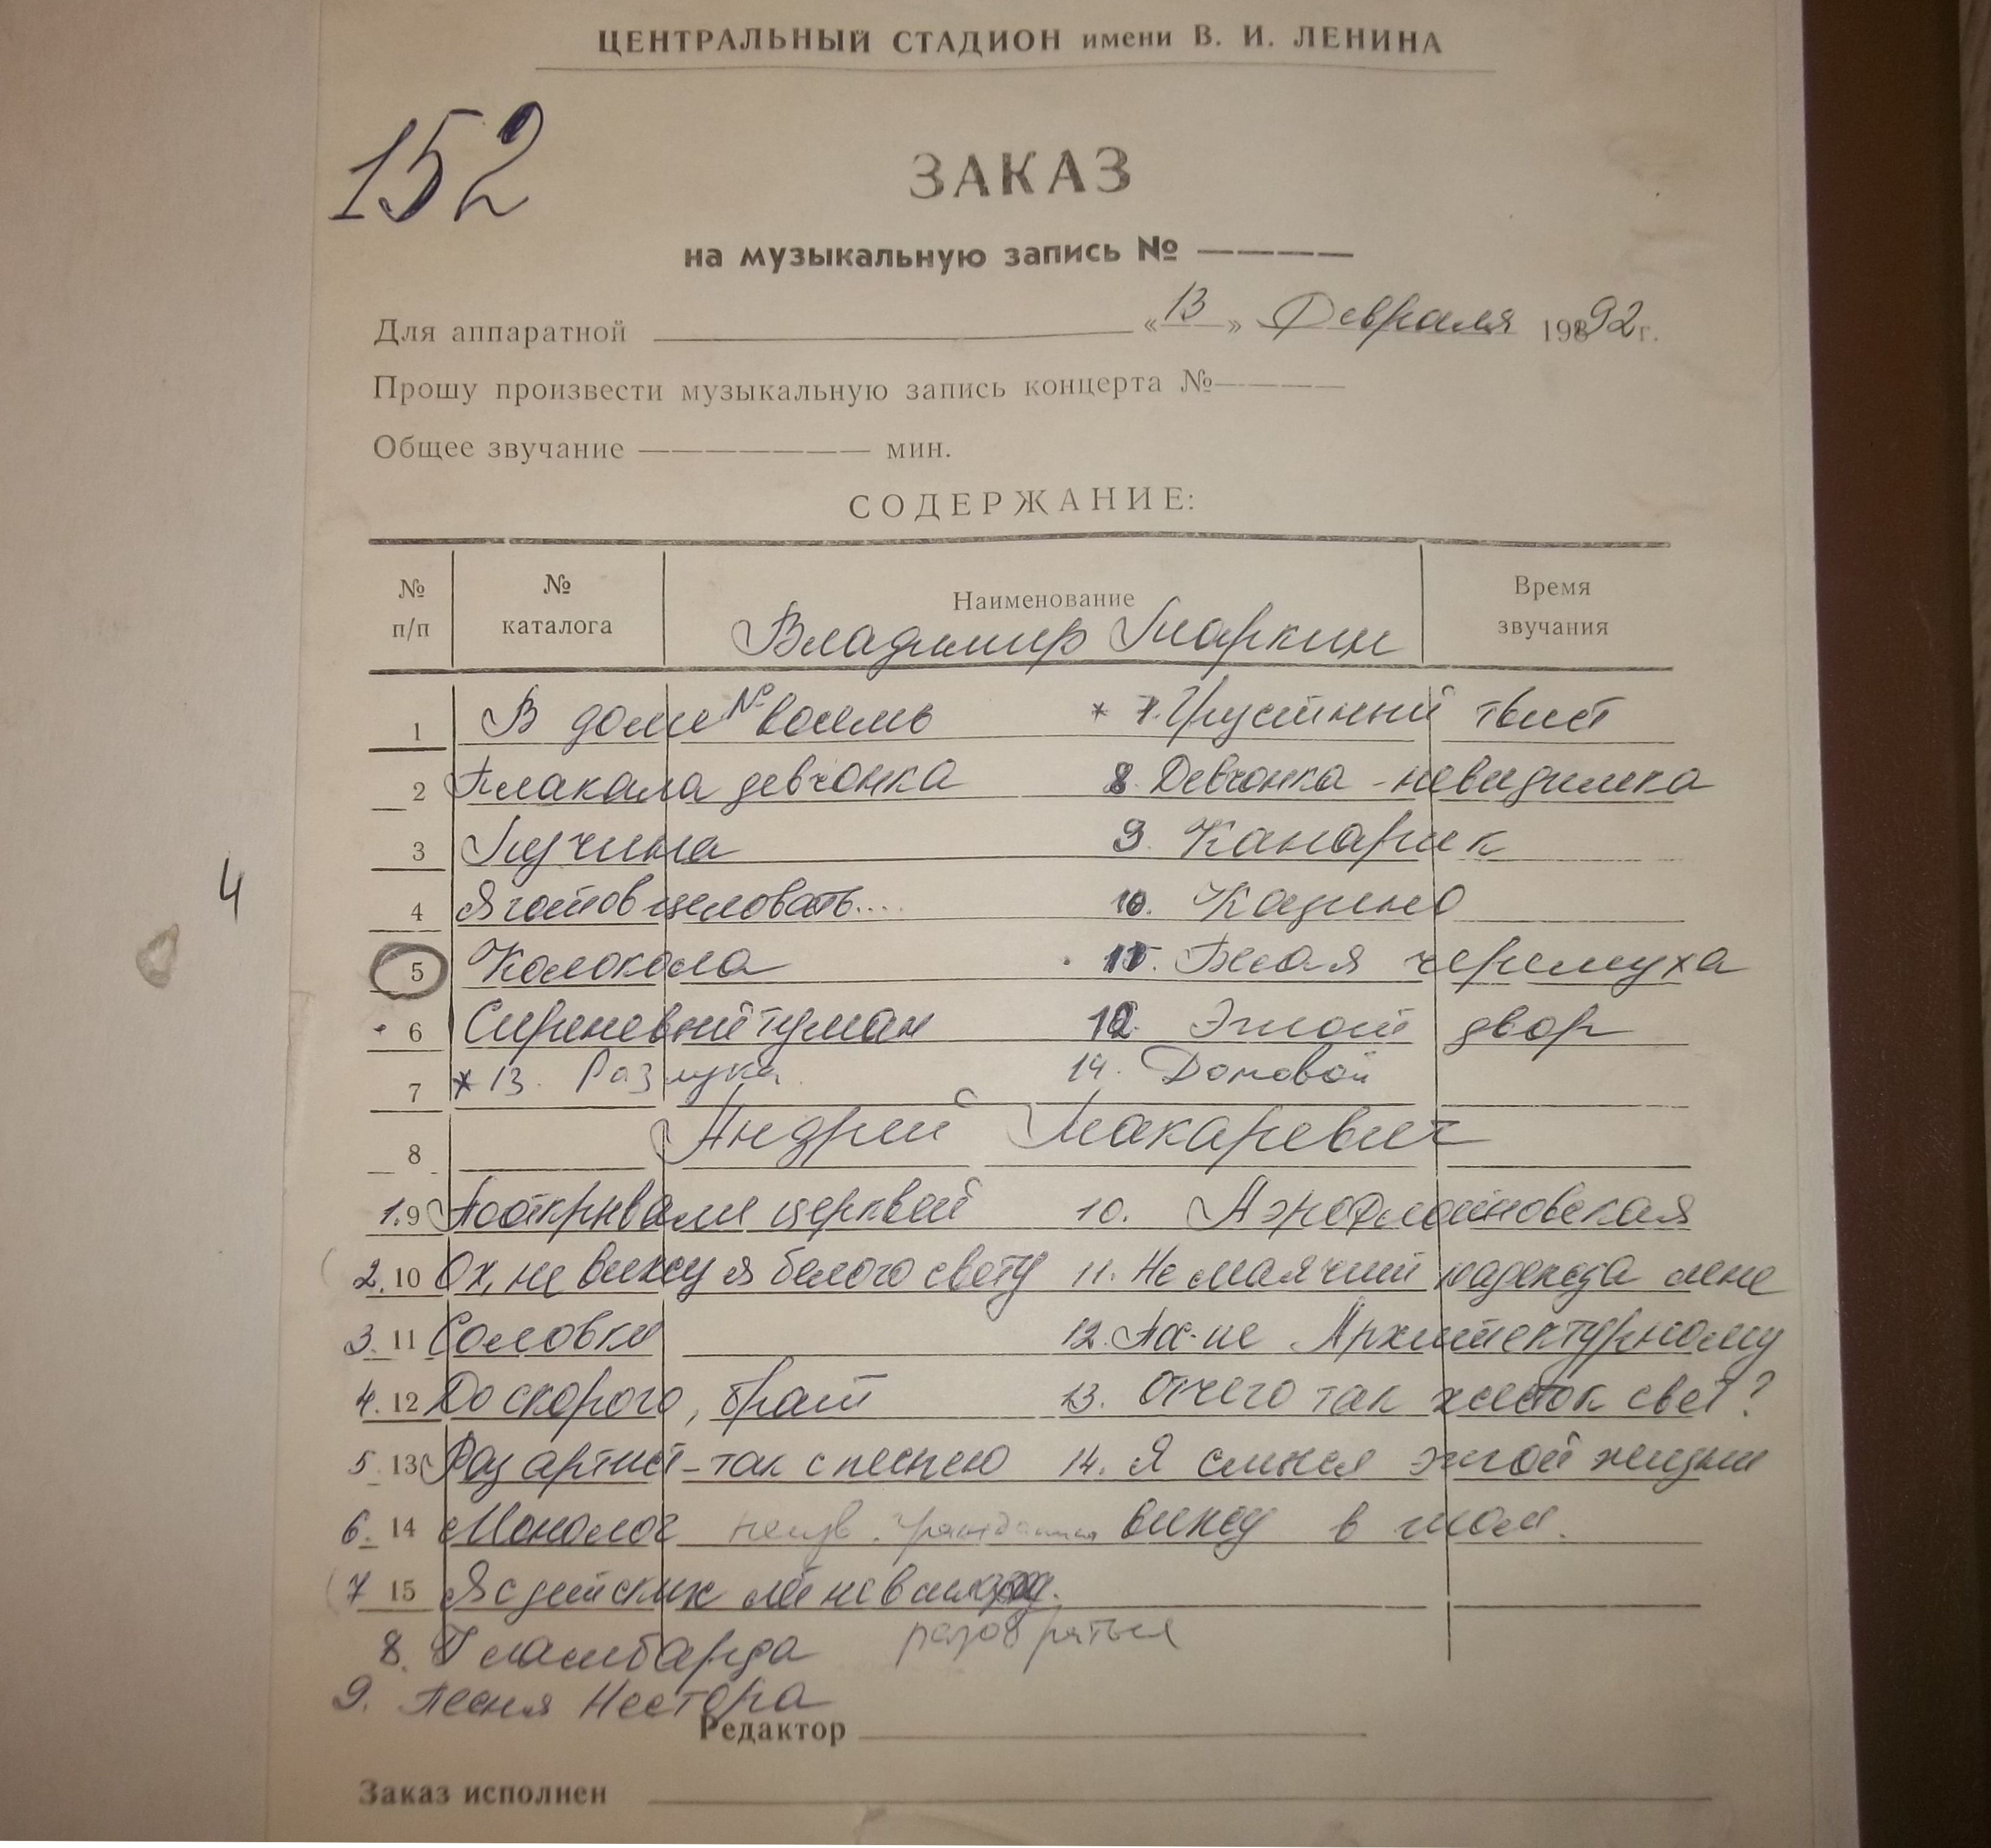 ЦЕНТРАЛЬНЫЙ СТАДИОН имени В. И. ЛЕНИНА
152
ЗАКАЗ
на музыкальную запись №
Для аппаратной «13» Февраля 19892 г.
Прошу произвести музыкальную запись концерта №
Общее звучание мин.
СОДЕРЖАНИЕ:
№ п/п № каталога Наименование Время звучания
Владимир Маркин
1 В доме № восемь * 7. Грустный твист
2 Плакала девчонка 8. Девчонка-невидимка
3 Пучина 9. Канарик
4 Я готов целовать.... 10. Казино
4
5 Колокола 11. Белая черемуха
6 Сиреневый туман 12. Этот двор
7 * 13. Разлука 14. Домовой
8 Андрей Макаревич
1. 9 Пооткрывали церквей 10. Аэрофлотовская
2. 10 Ох, не вижу я белого свету 11. Не маячит надежда мне
3. 11 Соловки 12. Пос-ие Архитектурному
4. 12 До скорого, брат 13. Отчего так жесток свет?
5. 13 Раз артист-так с песнею 14. Я смысл этой жизни
6. 14 Монолог неизв. гражданина вижу в том.
7 15 Я с детских лет не в силах
разобраться
8. Гламбарда
9. Песня Нестора
Редактор
Заказ исполнен